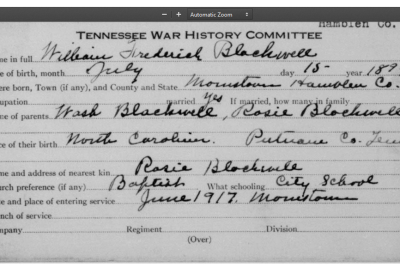 Automatic Zoom
Hamblen Co.
TENNESSEE WAR HISTORY COMMITTEE
me in full William Frederick Blackwell
e of birth, month July day 15- year 189
ere born, Town (if any), and County and State Morristown Hamblen Co.
upation married Yes If married, how many in family
e of parents Wash Blackwell, Rosie Blackwell
ce of their birth North Carolina. Putnam Co. Tenn
me and address of nearest kin Rosie Blackwell
urch preference (if any) Baptist What schooling City School
e and place of entering service June 1917. Morristown
nch of service
mpany Regiment Division
(Over)